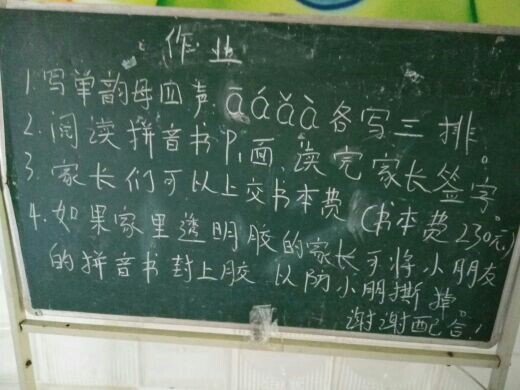 作业
1.写单韵母四声 ā á ǎ à 各写三排。
2.阅读拼音书P1面,读完家长签字。
3.家长们可以上交书本费(书本费230元)
4.如果家里透明胶的家长可将小朋友
的拼音书封上胶 以防小朋撕掉。
谢谢配合!